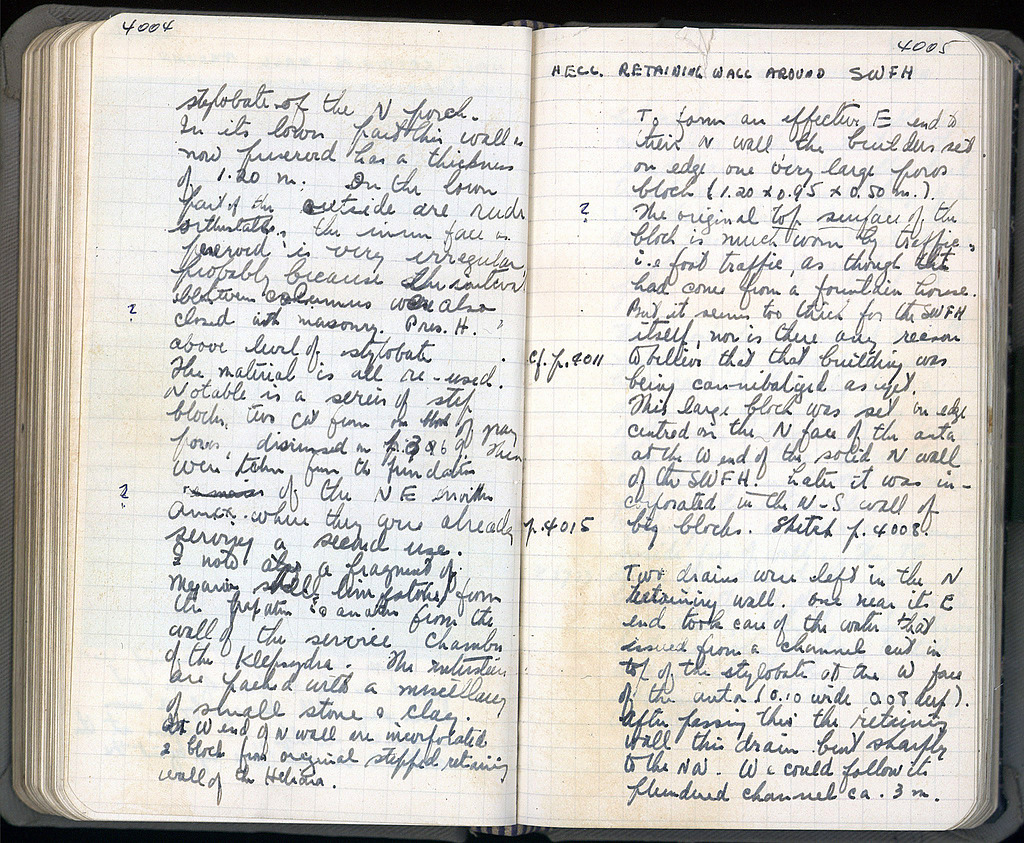 4004
stylobate of the N porch.
In its lower part this wall as
now preserved has a thickness
of 1.20 m. On the lower
part of the outside are rude
orthostates; the inner face as
preserved is very irregular,
probably because the
between columns were also
? closed with masonry. Pres. H.
above level of stylobate
The material is all re-used.
Notable is a series of step
blocks, two cut from of gray
poros, discussed on p. These
were taken from the foundation
? of the NE
annex where they were already
serving a second use.
I note also a fragment of
Megarian shell limestone from
the & another from the
wall of the service chamber
of the Klepsydra. The
are packed with a miscellany
of small stone & clay.
At W end of N wall are incorporated
2 blocks from original stepped retaining
wall of the Heliaia.
4005
HELL. RETAINING WALL AROUND SWFH
To form an effective E end to
their N wall the builders set
on edge one very large poros
block (1.20 x 0.95 x 0.50 m.).
? The original top surface of the
block is much worn by traffic,
i.e. foot traffic, as though that
had come from a fountain house.
But it seems too thick for the SWFH
itself, nor is there any reason
cf. p. 4011 to believe that that building was
being cannibalized as yet.
This large block was set on edge
centred on the N face of the anta
at the W end of the solid N wall
of the SWFH. Later it was in-
corporated in the N-S wall of
p. 4015 big blocks. Sketch p. 4008.
Two drains were left in the N
retaining wall. One near its E
end took care of the water that
issued from a channel cut in
top of the stylobate at the W face
of the anta (0.10 wide 0.08 deep).
After passing thru the retaining
wall this drain bent sharply
to the NW. We could follow its
plundered channel ca. 3 m.